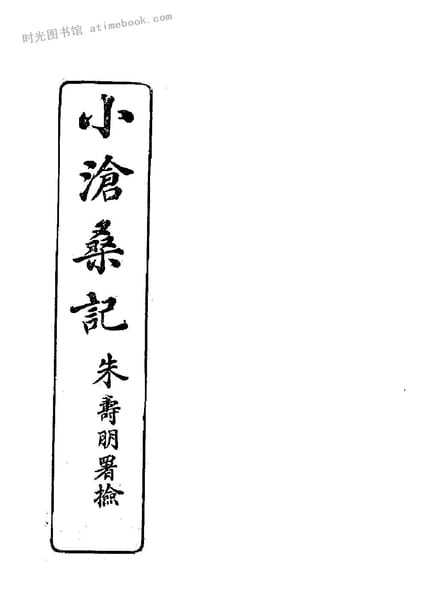 时光图书馆 atimebook.com
小滄桑記
朱壽朙署撿